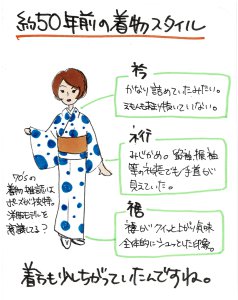 約50年前の着物スタイル
衿
かなり詰めていたみたい。
えもんもあまり抜いていない。
裄
みじかめ。留袖、振袖
等の礼装でも手首が
見えていた。
裾
褄がクイッと上がり気味
全体的にシュッとした印象。
70'sの
着物雑誌は
ポーズが独特。
洋服モデルを
意識してる?
着方も少しちがっていたんですね。